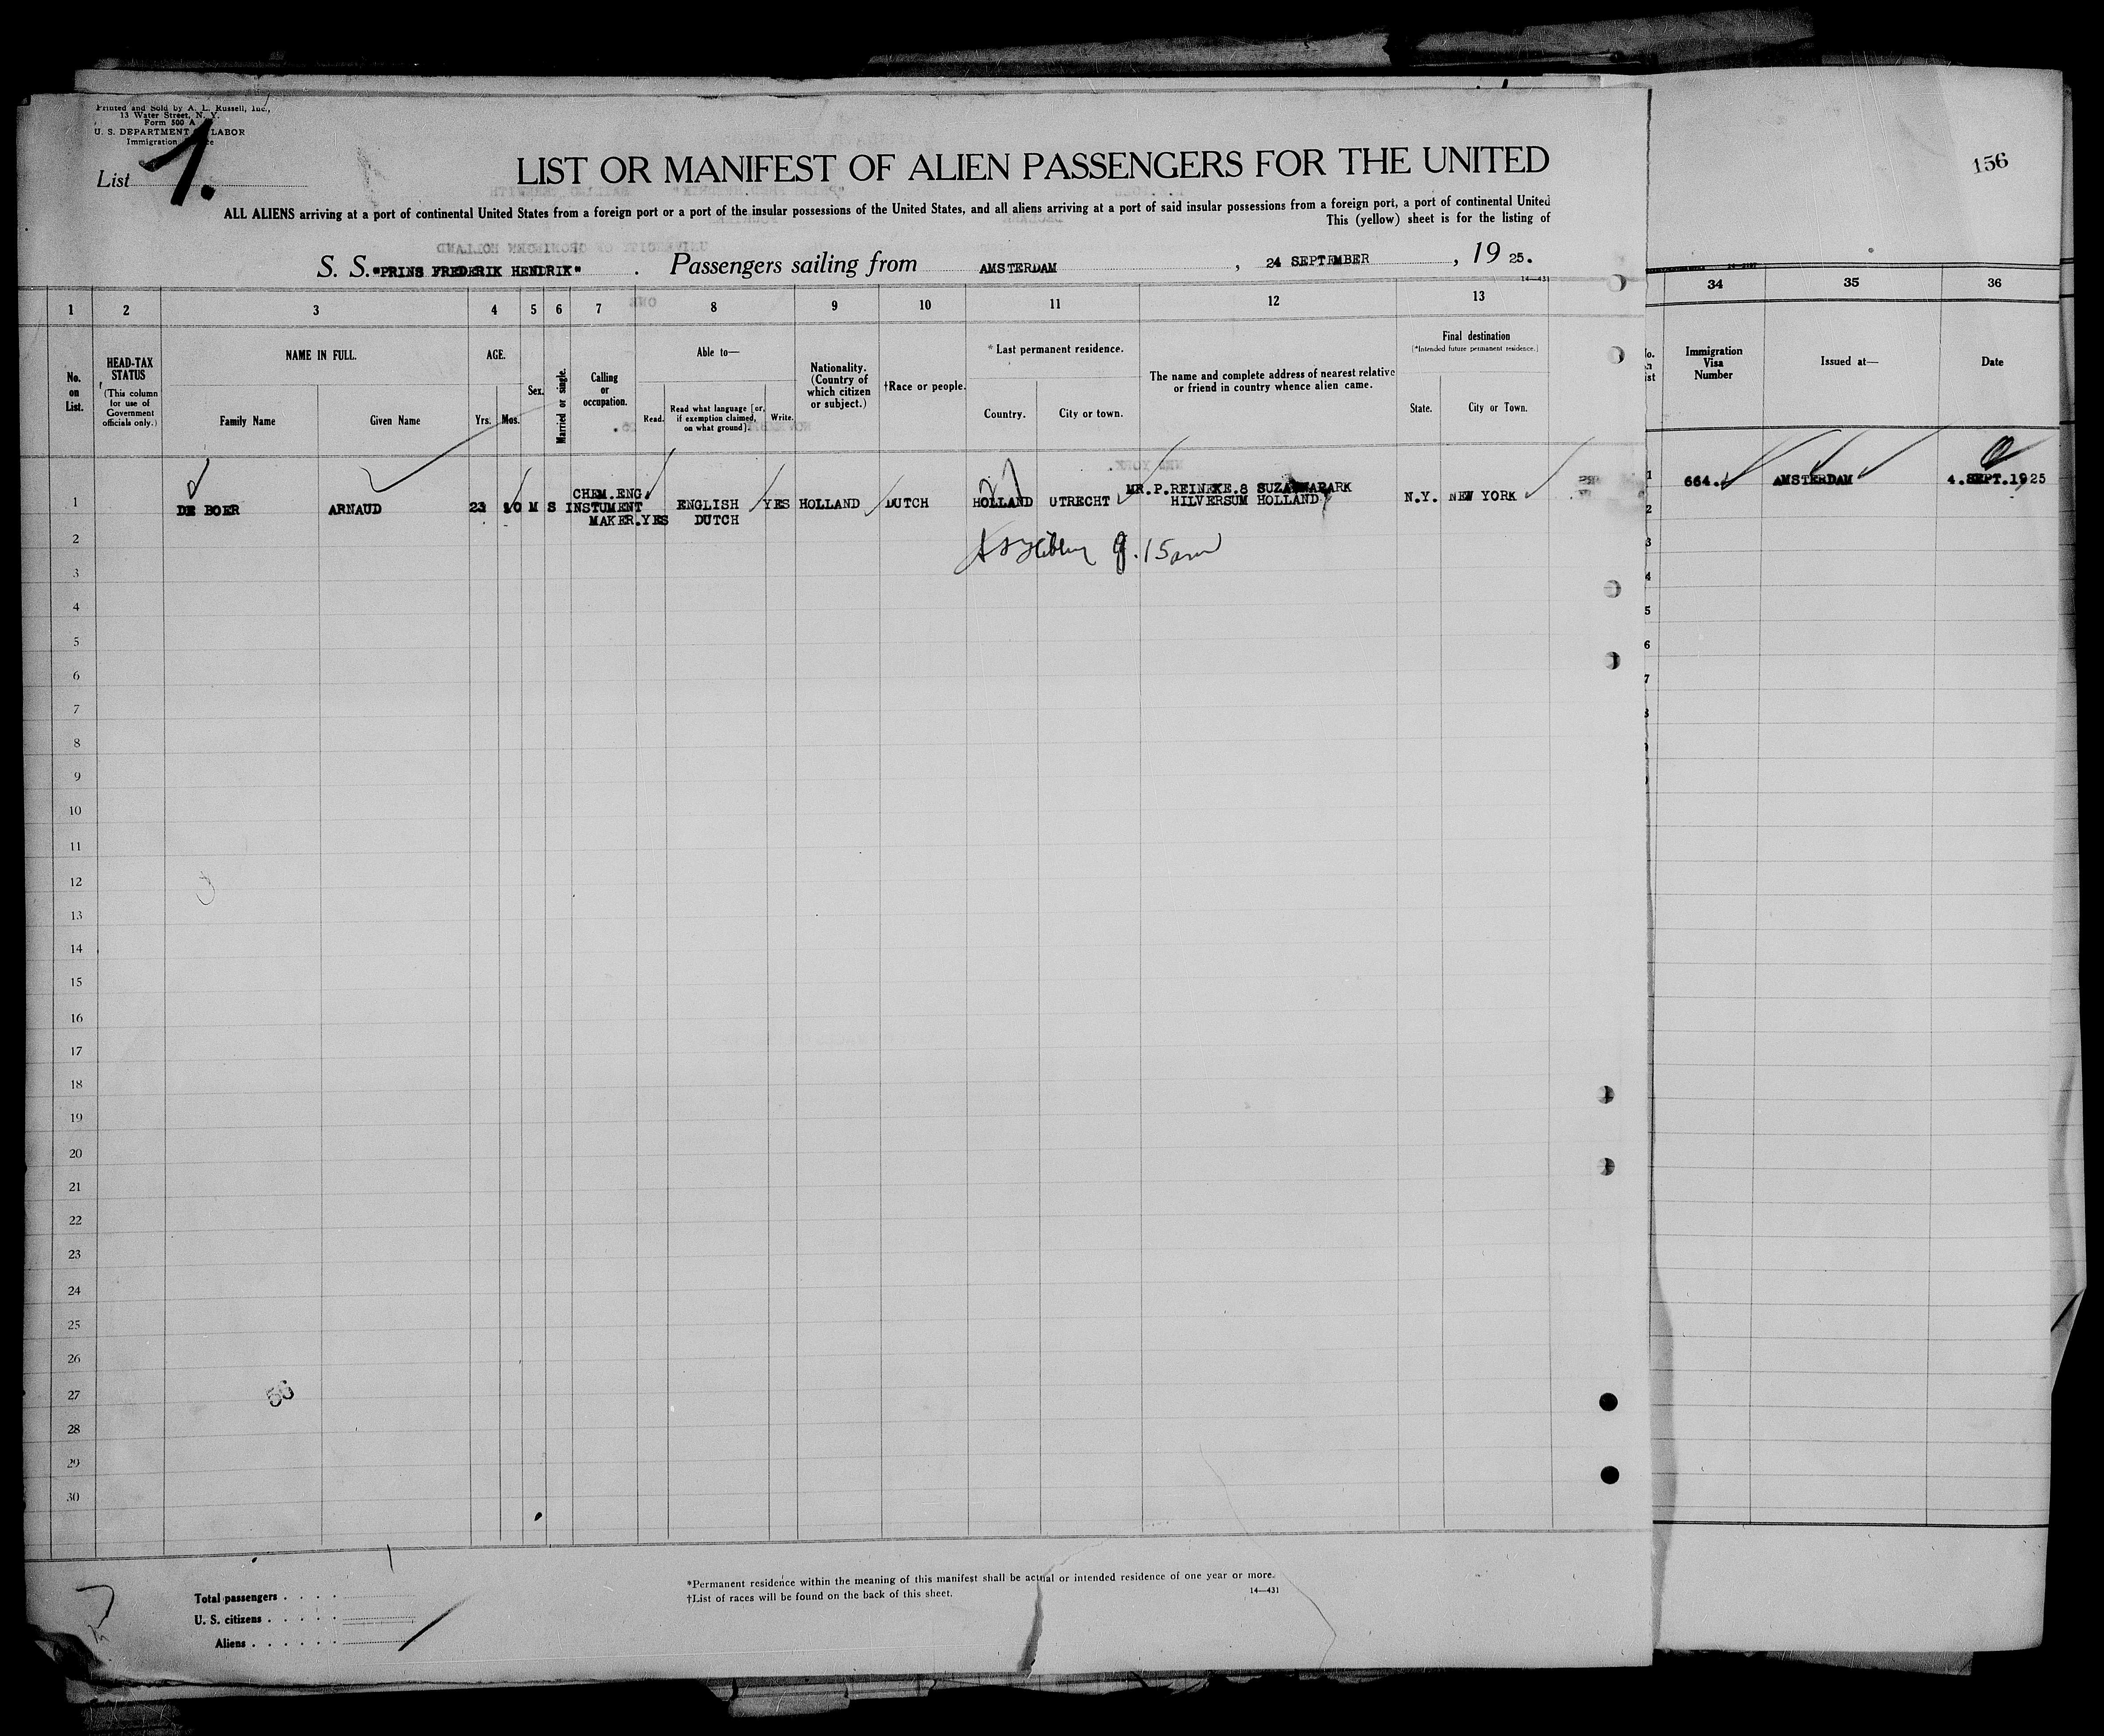 Printed and Sold by A. L. Russell, Inc.,
13 Water Street, N. Y.
Form 500 A
U. S. DEPARTMENT LABOR
Immigration
List 1.
LIST OR MANIFEST OF ALIEN PASSENGERS FOR THE UNITED
156
ALL ALIENS arriving at a port of continental United States from a foreign port or a port of the insular possessions of the United States, and all aliens arriving at a port of said insular possessions from a foreign port, a port of continental United
This (yellow) sheet is for the listing of
S. S. "PRINS FREDERIK HENDRIK" . Passengers sailing from AMSTERDAM , 24 SEPTEMBER , 19 25.
14—431
1 2 3 4 5 6 7 8 9 10 11 12 13 34 35 36
No. on List.
HEAD-TAX STATUS
(This column for use of Government officials only.)
NAME IN FULL.
Family Name
Given Name
AGE.
Yrs.
Mos.
Sex.
Married or single.
Calling or occupation.
Able to—
Read.
Read what language [or, if exemption claimed, on what ground].
Write.
Nationality. (Country of which citizen or subject.)
†Race or people.
*Last permanent residence.
Country.
City or town.
The name and complete address of nearest relative or friend in country whence alien came.
Final destination
(*Intended future permanent residence.)
State.
City or Town.
Immigration Visa Number
Issued at—
Date
CHEM.ENG. MR.P.REINEKE.8 SUZANNAPARK
1 DE BOER ARNAUD 23 10 M S INSTUMENT ENGLISH YES HOLLAND DUTCH HOLLAND UTRECHT HILVERSUM HOLLAND N.Y. NEW YORK 664. AMSTERDAM 4.SEPT.1925
MAKER.YES DUTCH
2
3
4
5
6
7
8
9
10
11
12
13
14
15
16
17
18
19
20
21
22
23
24
25
26
27
28
29
30
Total passengers
U. S. citizens
Aliens
*Permanent residence within the meaning of this manifest shall be actual or intended residence of one year or more.
†List of races will be found on the back of this sheet.
14—431